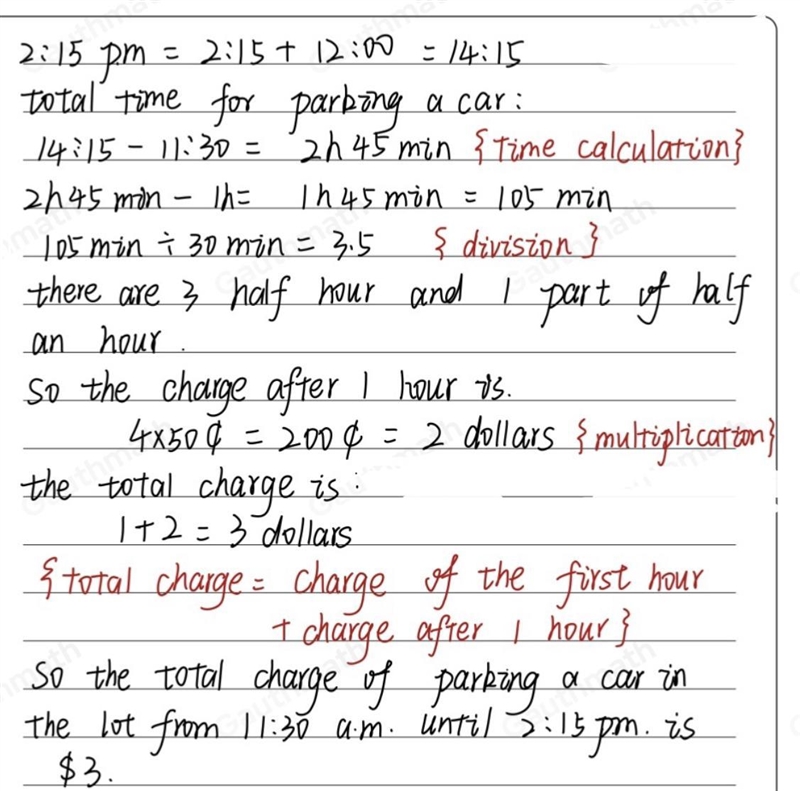 2:15 pm = 2:15 + 12:00 = 14:15
total time for parking a car:
14:15 - 11:30 = 2h 45 min {Time calculation}
2h45 min - 1h = 1h 45 min = 105 min
105 min ÷ 30 min = 3.5 { division }
there are 3 half hour and 1 part of half
an hour.
So the charge after 1 hour is.
4×50 ¢ = 200 ¢ = 2 dollars {multiplication}
the total charge is:
1 + 2 = 3 dollars
{total charge = charge of the first hour
+ charge after 1 hour}
So the total charge of parking a car in
the lot from 11:30 a.m. until 2:15 pm. is
$3.